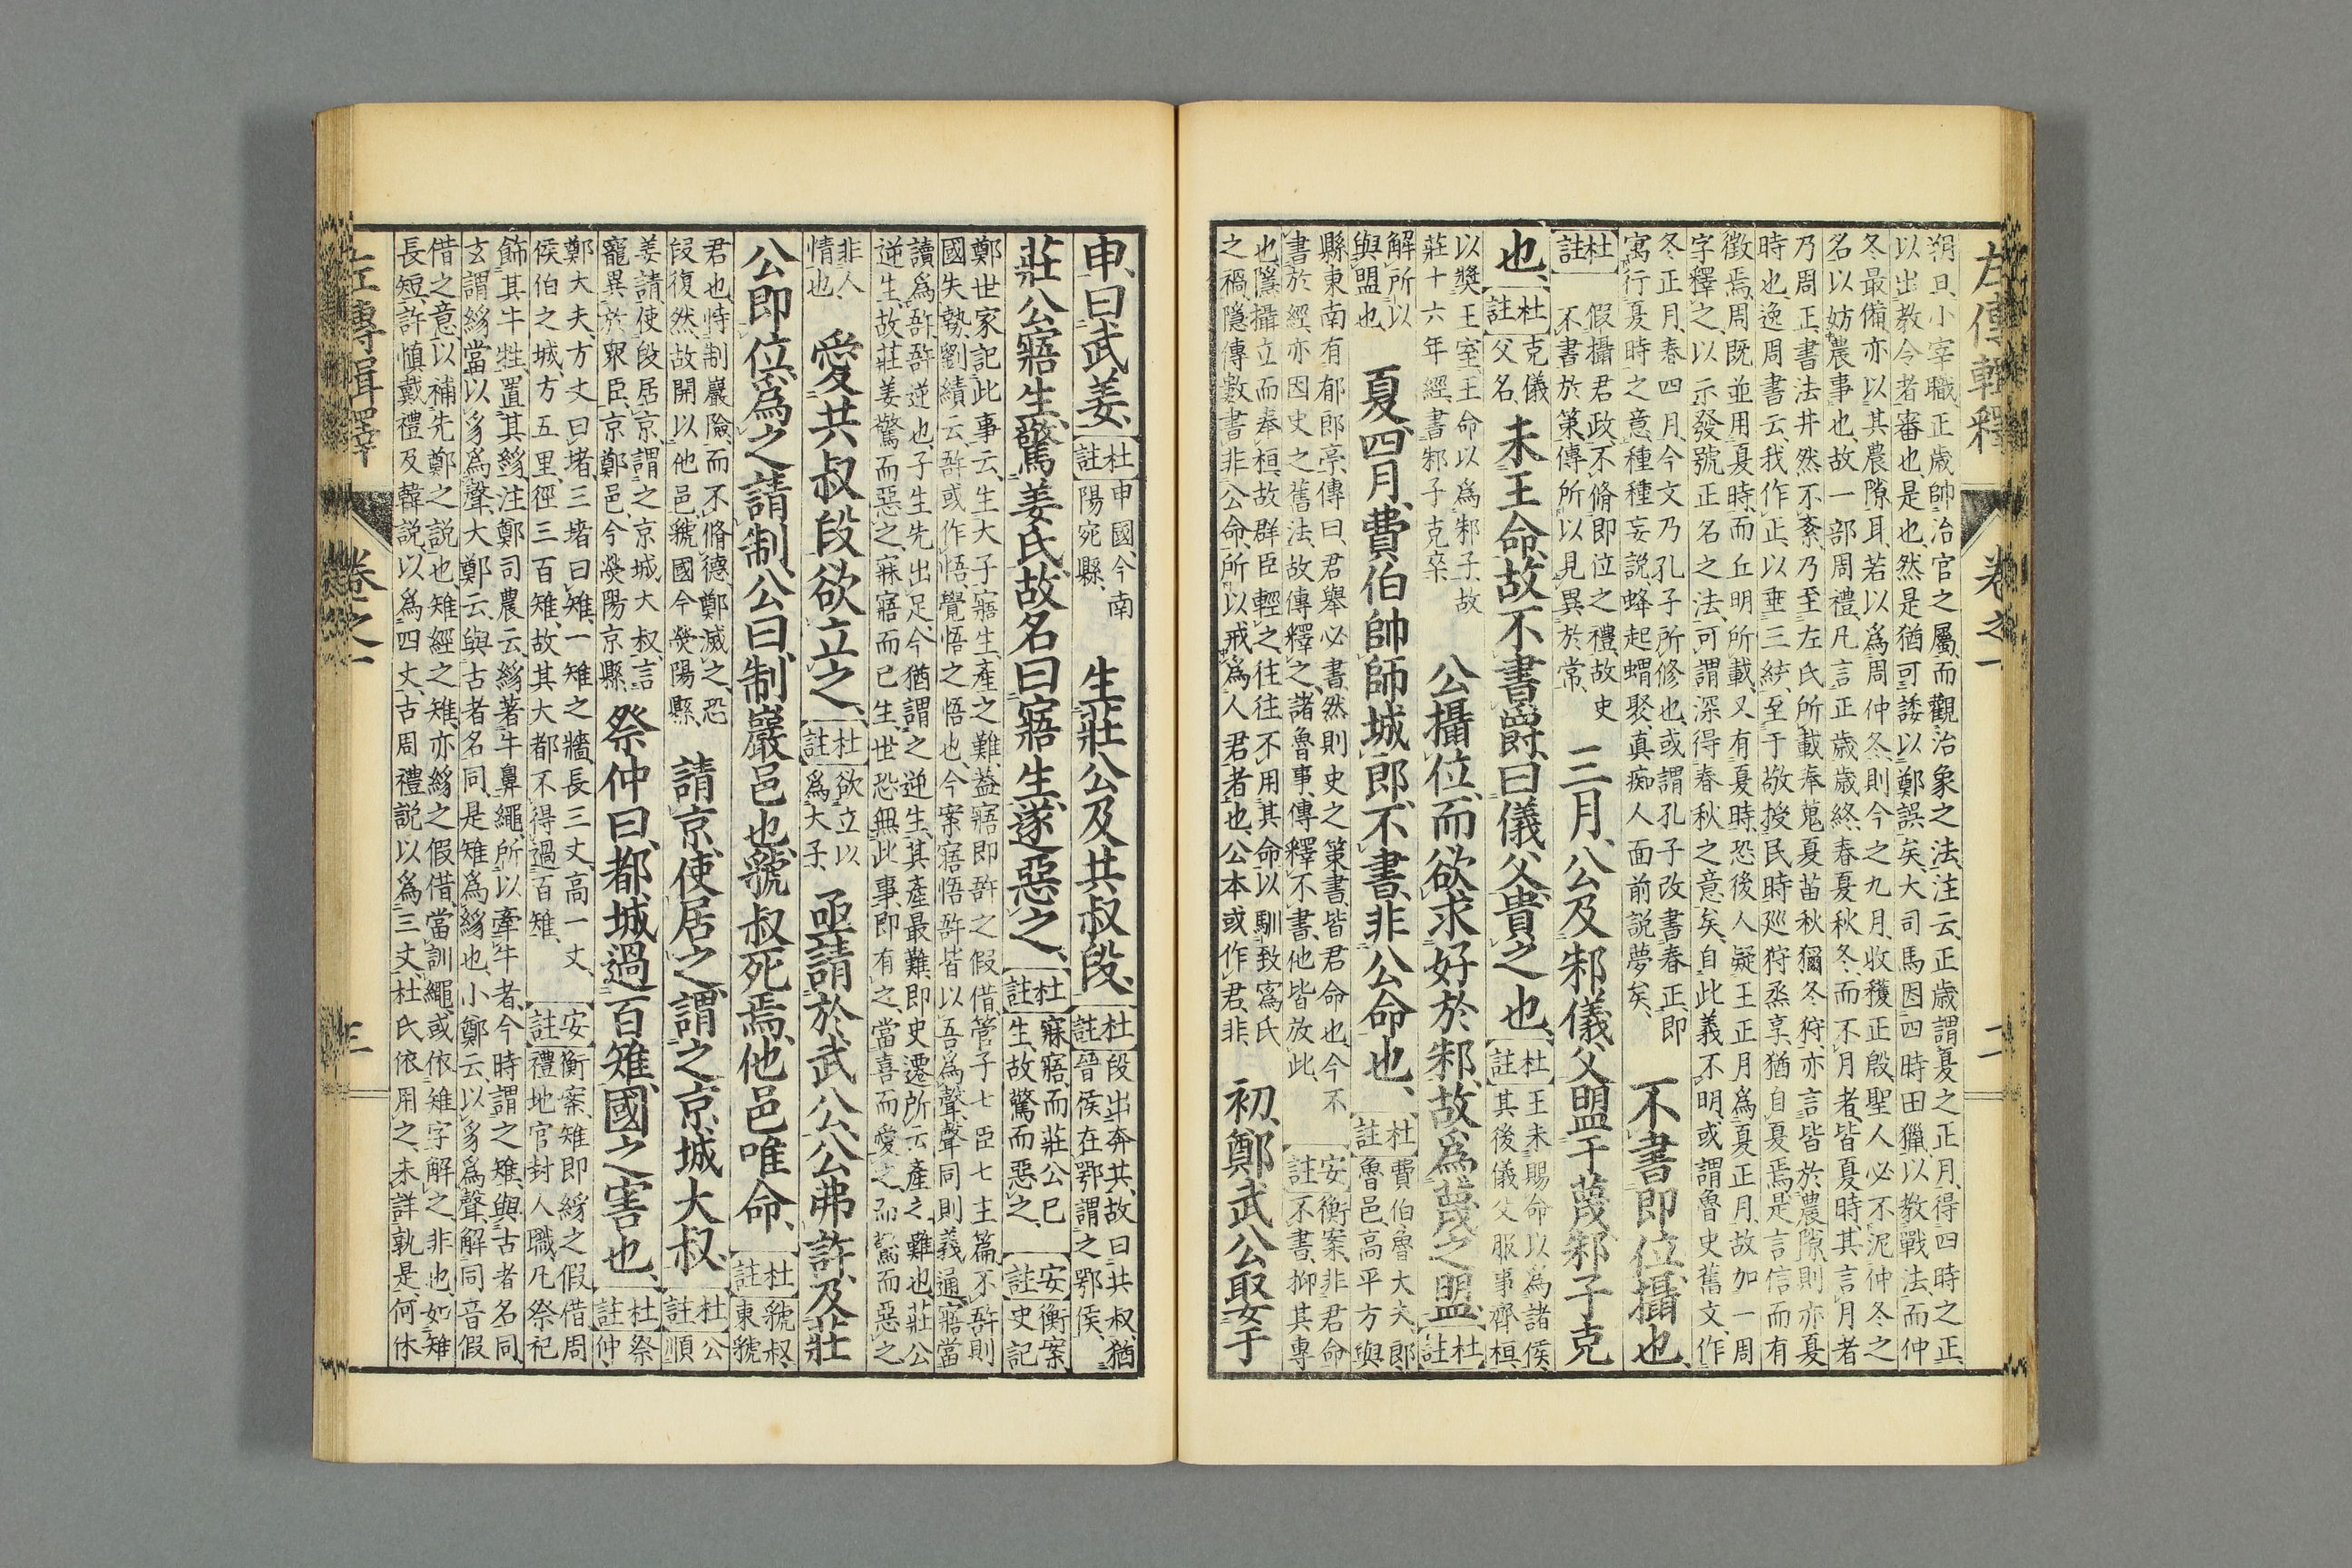 左傳輯釋 卷之一 二
朔旦、小宰職、正歲帥治官之屬、而觀治象之法、注云、正歲謂夏之正月、得四時之正、
以出教令者審也、是也、然是猶可諉以鄭誤矣、大司馬因四時田獵、以教戰法、而仲
冬最備、亦以其農隙耳、若以爲周仲冬、則今之九月、收穫正殷、聖人必不泥仲冬之
名、以妨農事也、故一部周禮、凡言正歲歲終、春夏秋冬、而不月者、皆夏時、其言月者
乃周正、書法井然不紊、乃至左氏所載春蒐夏苗秋獮冬狩、亦言皆於農隙、則亦夏
時也、逸周書云、我作正、以垂三統、至于敬授民時、巡狩烝享、猶自夏焉、是言信而有
徵焉、周既並用夏時、而丘明所載、又有夏時、恐後人疑王正月爲夏正月、故加一周
字釋之、以示發號正名之法、可謂深得春秋之意矣、自此義不明、或謂魯史舊文、作
冬正月、春四月、今文乃孔子所修也、或謂孔子改書春正、即
寓行夏時之意、種種妄説、蜂起蝟聚、真痴人面前説夢矣、
不書即位、攝也、
杜註 假攝君政、不脩即位之禮、故史
不書於策、傳所以見異於常、
三月、公及邾儀父盟于蔑、邾子克
也、
杜註 克儀
父名、
未王命、故不書爵、曰儀父、貴之也、
杜註 王未賜命以爲諸侯、
其後儀父服事齊桓、
以奬王室、王命以爲邾子、故
莊十六年經書邾子克卒、
公攝位、而欲求好於邾、故爲蔑之盟、
杜註
解所以
與盟也、
夏、四月、費伯帥師城郎、不書、非公命也、
杜註 費伯魯大夫、郎
魯邑、高平方與
縣東南有郁郎亭、傳曰、君舉必書、然則史之策書、皆君命也、今不
書於經、亦因史之舊法、故傳釋之、諸魯事、傳釋不書、他皆放此、
安註 衡案、非君命
不書、抑其專
也、隱攝立而奉桓、故群臣輕之、往往不用其命、以馴致寪氏
之禍、隱傳數書非公命、所以戒爲人君者也、公本或作君、非、
初、鄭武公娶于
申、曰武姜、
杜註 申國、今南
陽宛縣、
生莊公及共叔段、
杜註 段出奔共、故曰共叔、猶
晉侯在鄂、謂之鄂侯、
莊公寤生、驚姜氏、故名曰寤生、遂惡之、
杜註 寐寤而莊公已
生、故驚而惡之、
安註 衡案、
史記
鄭世家記此事云、生大子寤生、產之難、益寤即啎之假借、管子七臣七主篇、不啎則
國失執、劉績云、啎或作悟、覺悟之悟也、今案寤悟啎皆以吾爲聲、聲同則義通、寤當
讀爲啎、啎逆也、子生先出足、今猶謂之逆生、其產最難、即史遷所云產之難也、莊公
逆生、故莊姜驚而惡之、寐寤而已生、世恐無此事、即有之、當喜而愛之、而驚而惡之
非人
情也、
愛共叔段、欲立之、
杜註 欲立以
爲大子、
亟請於武公、公弗許、及莊
公即位、爲之請制、公曰、制巖邑也、虢叔死焉、他邑唯命、
杜註 虢叔、
東虢
君也、恃制巖險、而不脩德、鄭滅之、恐
段復然、故開以他邑、虢國今熒陽縣、
請京、使居之、謂之京城大叔、
杜註 公
順
姜請、使段居京、謂之京城大叔、言
寵異於眾臣、京鄭邑、今熒陽京縣、
祭仲曰、都城過百雉、國之害也、
杜註 祭
仲
鄭大夫、方丈曰堵、三堵曰雉、一雉之牆、長三丈、高一丈、
侯伯之城、方五里、徑三百雉、故其大都不得過百雉、
安註 衡案、雉即絼之假借、周
禮地官封人職、凡祭祀
飾其牛牲、置其絼、注鄭司農云、絼著牛鼻繩、所以牽牛者、今時謂之雉、與古者名同、
玄謂絼當以豸爲聲、大鄭云、與古者名同、是雉爲絼也、小鄭云、以豸爲聲、解同音假
借之意、以補先鄭之説也、雉經之雉、亦絼之假借、當訓繩、或依雉字解之、非也、如雉
長短、許慎戴禮及韓説、以爲四丈、古周禮説以爲三丈、杜氏依用之、未詳孰是、何休
左傳輯釋 卷之一 三